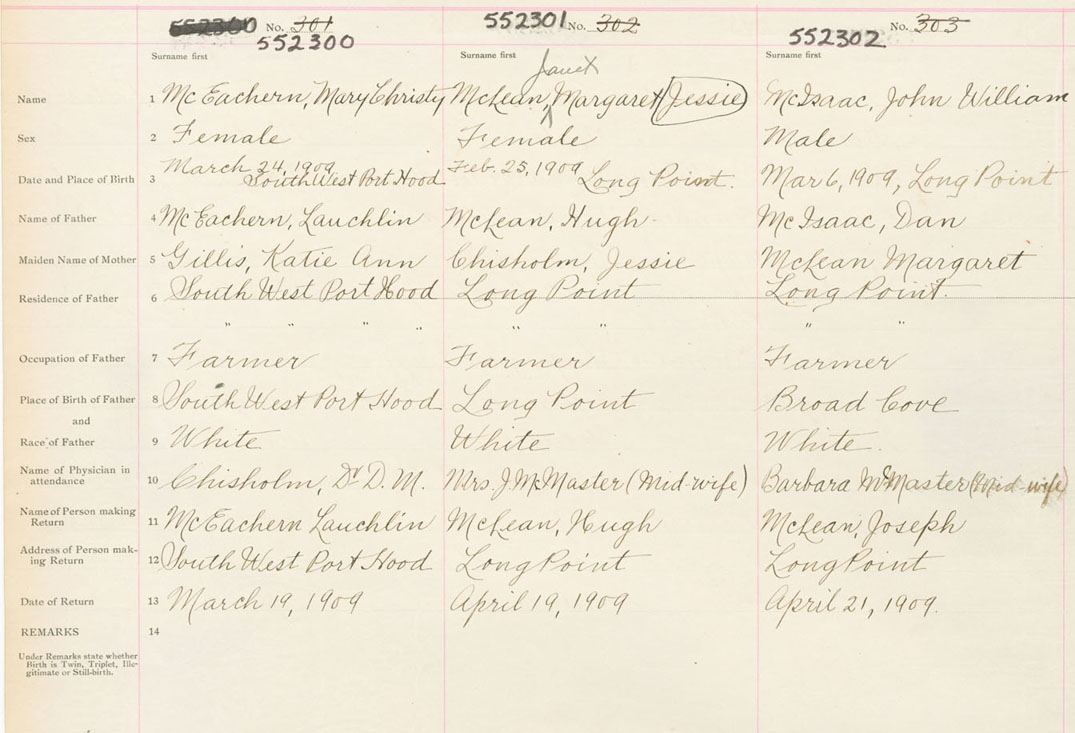 552300 No. 301 552301 No. 302 No. 303
552300 552302
Surname first Surname first Surname first
Janet
Name 1 McEachern, Mary Christy McLean, Margaret (Jessie) McIsaac, John William
Sex 2 Female Female Male
March 24, 1909 Feb. 25, 1909
Date and Place of Birth 3 South West Port Hood Long Point. Mar 6, 1909, Long Point
Name of Father 4 McEachern, Lauchlin McLean, Hugh McIsaac, Dan
Maiden Name of Mother 5 Gillis, Katie Ann Chisholm, Jessie McLean Margaret
Residence of Father 6 South West Port Hood Long Point Long Point.
" " " " " " " "
Occupation of Father 7 Farmer Farmer Farmer
Place of Birth of Father 8 South West Port Hood Long Point Broad Cove
and
Race of Father 9 White White White.
Name of Physician in
attendance 10 Chisholm, Dr D. M. Mrs. J McMaster (Mid-wife) Barbara McMaster (Mid-wife)
Name of Person making
Return 11 McEachern Lauchlin McLean, Hugh McLean, Joseph
Address of Person mak-
ing Return 12 South West Port Hood Long Point Long Point
Date of Return 13 March 19, 1909 April 19, 1909 April 21, 1909.
REMARKS 14
Under Remarks state whether
Birth is Twin, Triplet, Ille-
gitimate or Still-birth.